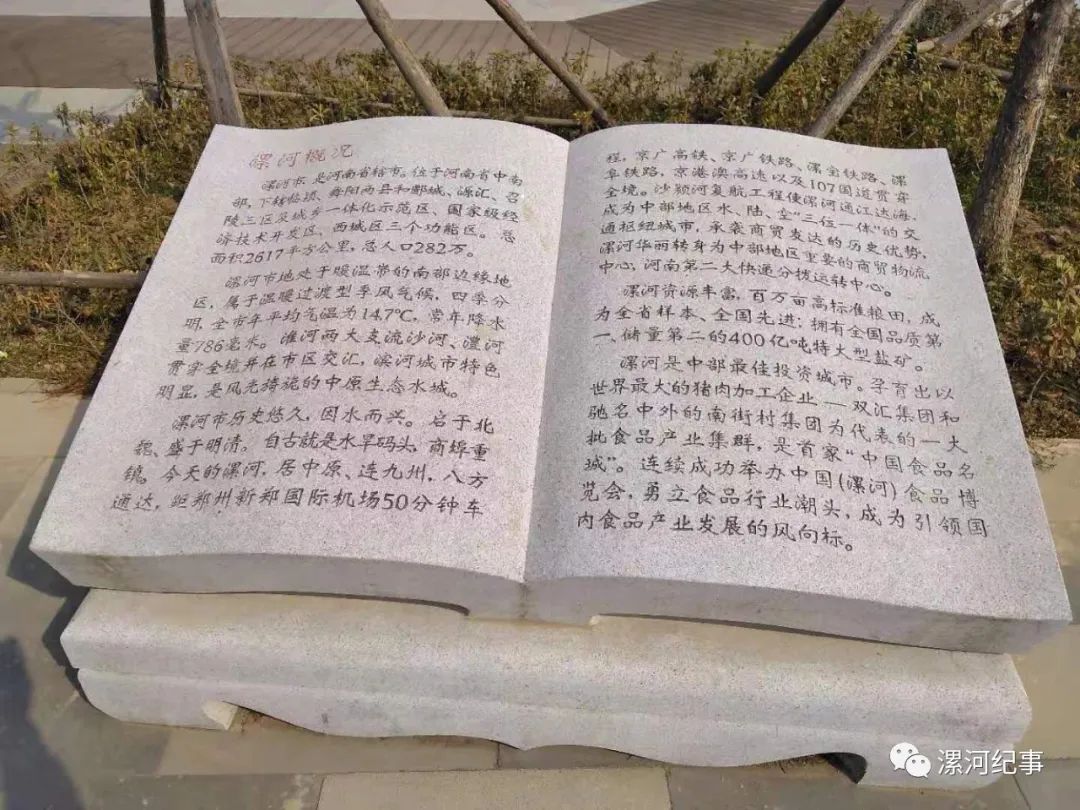 漯河概况
漯河市,是河南省辖市。位于河南省中南
部,下辖临颍、舞阳两县和郾城、源汇、召
陵三区及城乡一体化示范区、国家级经
济技术开发区、西城区三个功能区。总
面积2617平方公里,总人口282万。
漯河市地处于暖温带的南部边缘地
区,属于温暖过渡型季风气候,四季分
明,全市年平均气温为14.7℃,常年降水
量786毫米。淮河两大支流沙河、澧河
贯穿全境并在市区交汇,滨河城市特色
明显,是风光旖旎的中原生态水城。
漯河市历史悠久,因水而兴。启于北
魏、盛于明清。自古就是水旱码头,商埠重
镇。今天的漯河,居中原、连九州,八方
通达,距郑州新郑国际机场50分钟车
程,京广高铁、京广铁路、漯宝铁路、漯
阜铁路,京港澳高速以及107国道贯穿
全境。沙颍河复航工程使漯河通江达海,
成为中部地区水、陆、空“三位一体”的交
通枢纽城市,承袭商贸发达的历史优势,
漯河华丽转身为中部地区重要的商贸物流
中心,河南第二大快递分拨运转中心。
漯河资源丰富,百万亩高标准粮田,成
为全省样本、全国先进;拥有全国品质第
一、储量第二的400亿吨特大型盐矿。
漯河是中部最佳投资城市。孕育出以
世界最大的猪肉加工企业——双汇集团和
驰名中外的南街村集团为代表的一大
批食品产业集群,是首家“中国食品名
城”。连续成功举办中国(漯河)食品博
览会,勇立食品行业潮头,成为引领国
内食品产业发展的风向标。
漯河纪事